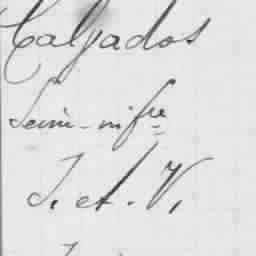 Calvados
Seine-infre
S. et. V.